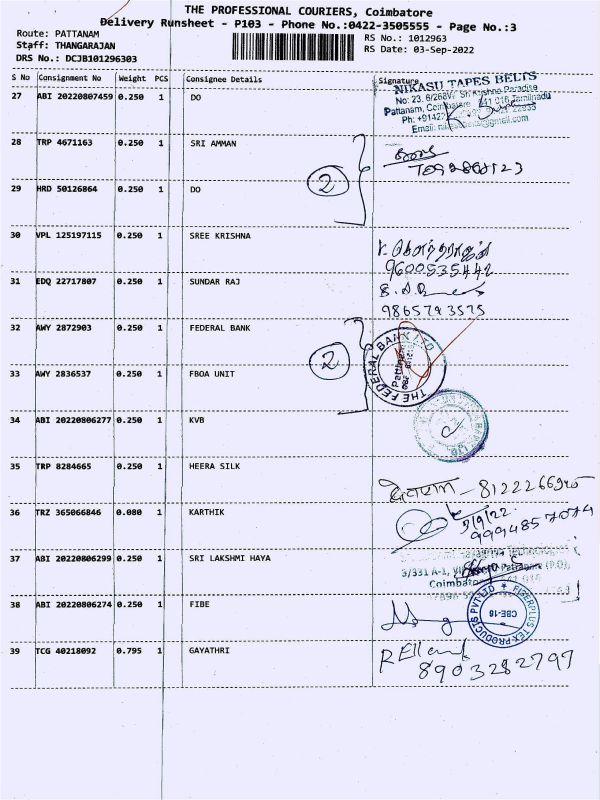 THE PROFESSIONAL COURIERS, Coimbatore
Delivery Runsheet - P103 - Phone No.:0422-3505555 - Page No.:3
Route: PATTANAM
Staff: THANGARAJAN
DRS No.: DCJB101296303
RS No.: 1012963
RS Date: 03-Sep-2022
S No Consignment No Weight PCS Consignee Details Signature
27 ABI 20220807459 0.250 1 DO
NIKASU TAPES BELTS
28 TRP 4671163 0.250 1 SRI AMMAN
2
29 HRD 50126864 0.250 1 DO
30 VPL 125197115 0.250 1 SREE KRISHNA
9600535442
31 EDQ 22717807 0.250 1 SUNDAR RAJ
9865793575
32 AWY 2872903 0.250 1 FEDERAL BANK
2
THE FEDERAL BANK LTD
33 AWY 2836537 0.250 1 FBOA UNIT
34 ABI 20220806277 0.250 1 KVB
35 TRP 8284665 0.250 1 HEERA SILK
36 TRZ 365066846 0.080 1 KARTHIK
9994857074
37 ABI 20220806299 0.250 1 SRI LAKSHMI HAYA
3/331 A-1,
38 ABI 20220806274 0.250 1 FIBE
FIBERPLUS TEX-PRODUCTS PVT LTD
CBE-16
39 TCG 40218092 0.795 1 GAYATHRI
8903282797